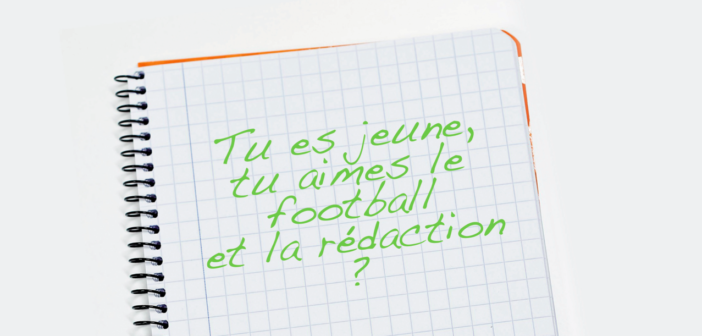 Tu es jeune,
tu aimes le
football
et la rédaction
?